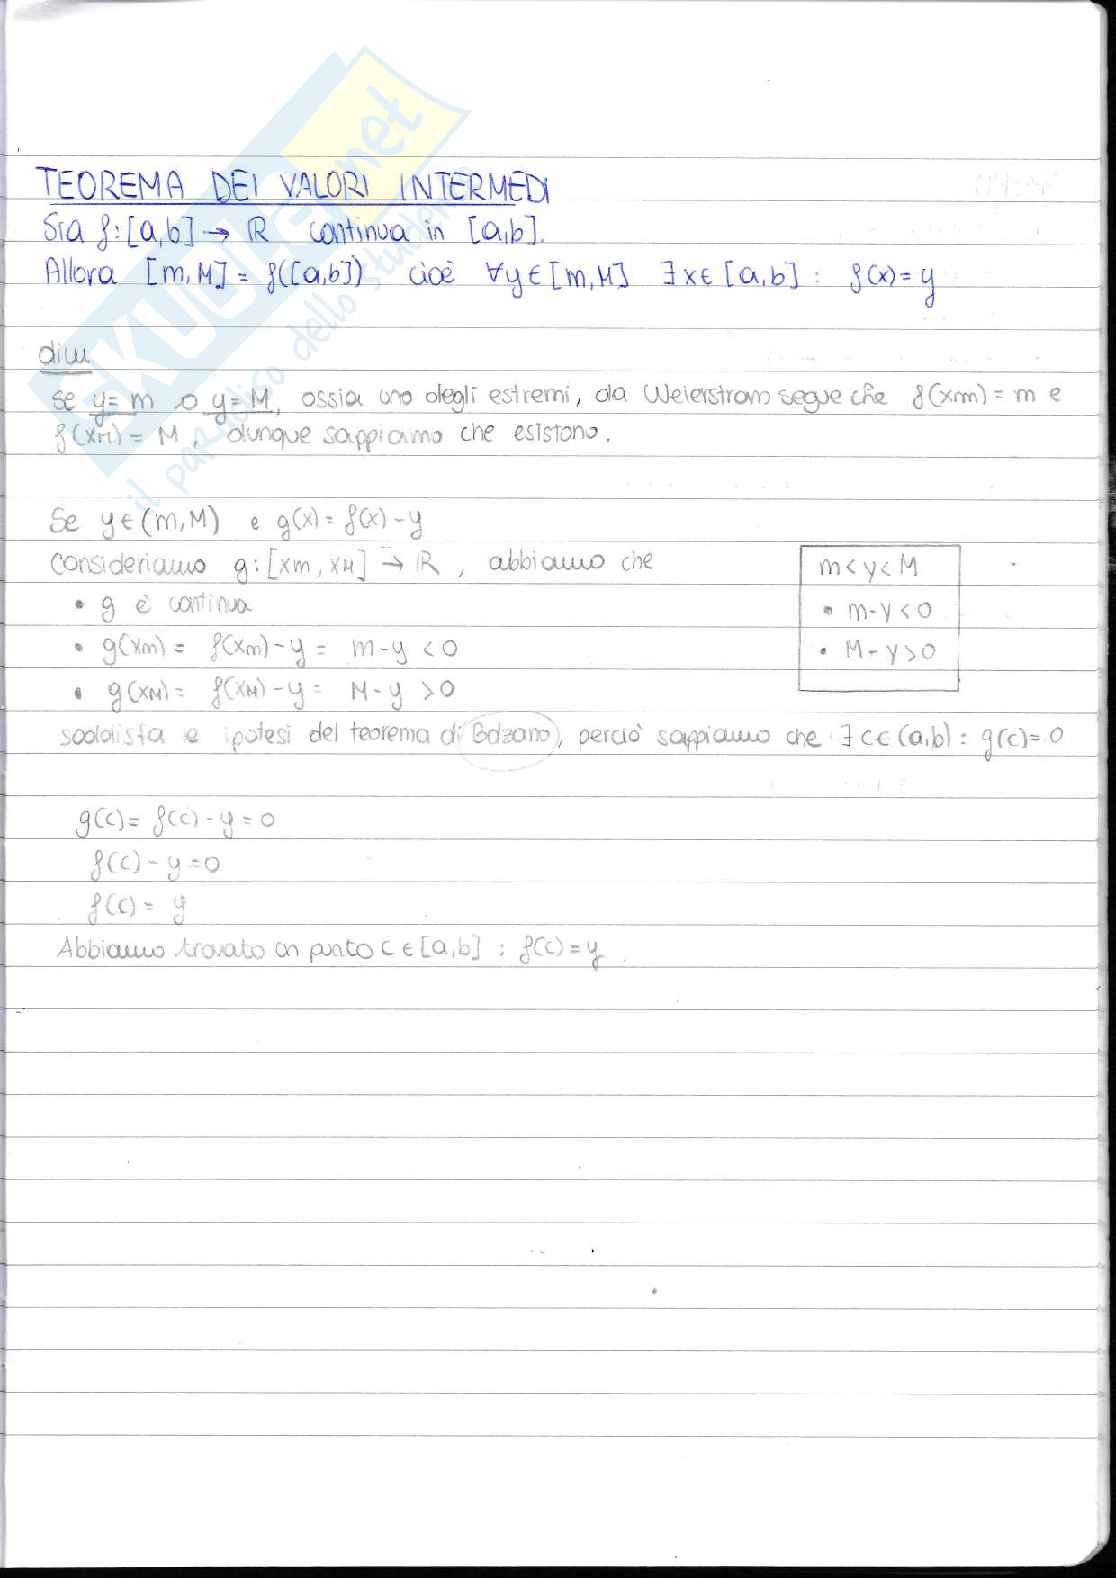 TEOREMA DEI VALORI INTERMEDI
Sia f:[a,b] → ℝ continua in [a,b].
Allora [m,M] = f([a,b]) cioè ∀y∈[m,M] ∃x∈[a,b] : f(x)=y
dim
Se y=m o y=M, ossia uno degli estremi, da Weierstrass segue che f(xm) = m e
f(xM) = M, dunque sappiamo che esistono.
Se y∈(m,M) e g(x)=f(x)-y
Consideriamo g:[xm,xM] → ℝ, abbiamo che
• g è continua
• g(xm) = f(xm)-y = m-y <0
• g(xM) = f(xM)-y = M-y >0
m<y<M
• m-y<0
• M-y>0
soddisfa e ipotesi del teorema di Bolzano, perciò sappiamo che ∃ c∈(a,b) : g(c)=0
g(c)= f(c)-y=0
f(c)-y=0
f(c)= y
Abbiamo trovato un punto c∈[a,b] : f(c)=y
SKUOLA.net
il paradiso dello studente